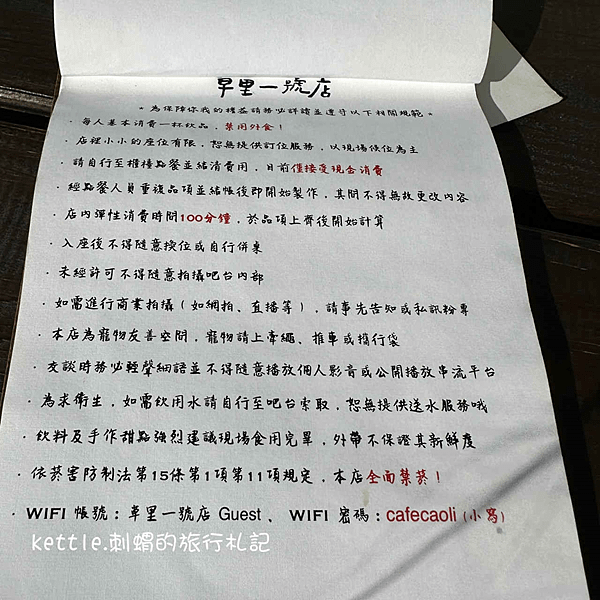 草里一號店
* 為保障你我的權益請務必詳讀並遵守以下相關規範 *
· 每人基本消費一杯飲品，禁用外食！
· 店裡小小的座位有限，恕無提供訂位服務，以現場候位為主
· 請自行至櫃檯點餐並結清費用，目前僅接受現金消費
· 經點餐人員重複品項並結帳後即開始製作，其間不得無故更改內容
· 店內彈性消費時間100分鐘，於品項上齊後開始計算
· 入座後不得隨意換位或自行併桌
· 未經許可不得隨意拍攝吧台內部
· 如需進行商業拍攝（如網拍、直播等），請事先告知或私訊粉專
· 本店為寵物友善空間，寵物請上牽繩、推車或攜行袋
· 交談時務必輕聲細語並不得隨意播放個人影音或公開播放串流平台
· 為求衛生，如需飲用水請自行至吧台索取，恕無提供送水服務哦
· 飲料及手作甜點強烈建議現場食用完畢，外帶不保證其新鮮度
· 依菸害防制法第15條第1項第11項規定，本店全面禁菸！
· WIFI 帳號：草里一號店 Guest 、 WIFI 密碼：cafecaoli (小寫)
kettle.刺蝟的旅行札記